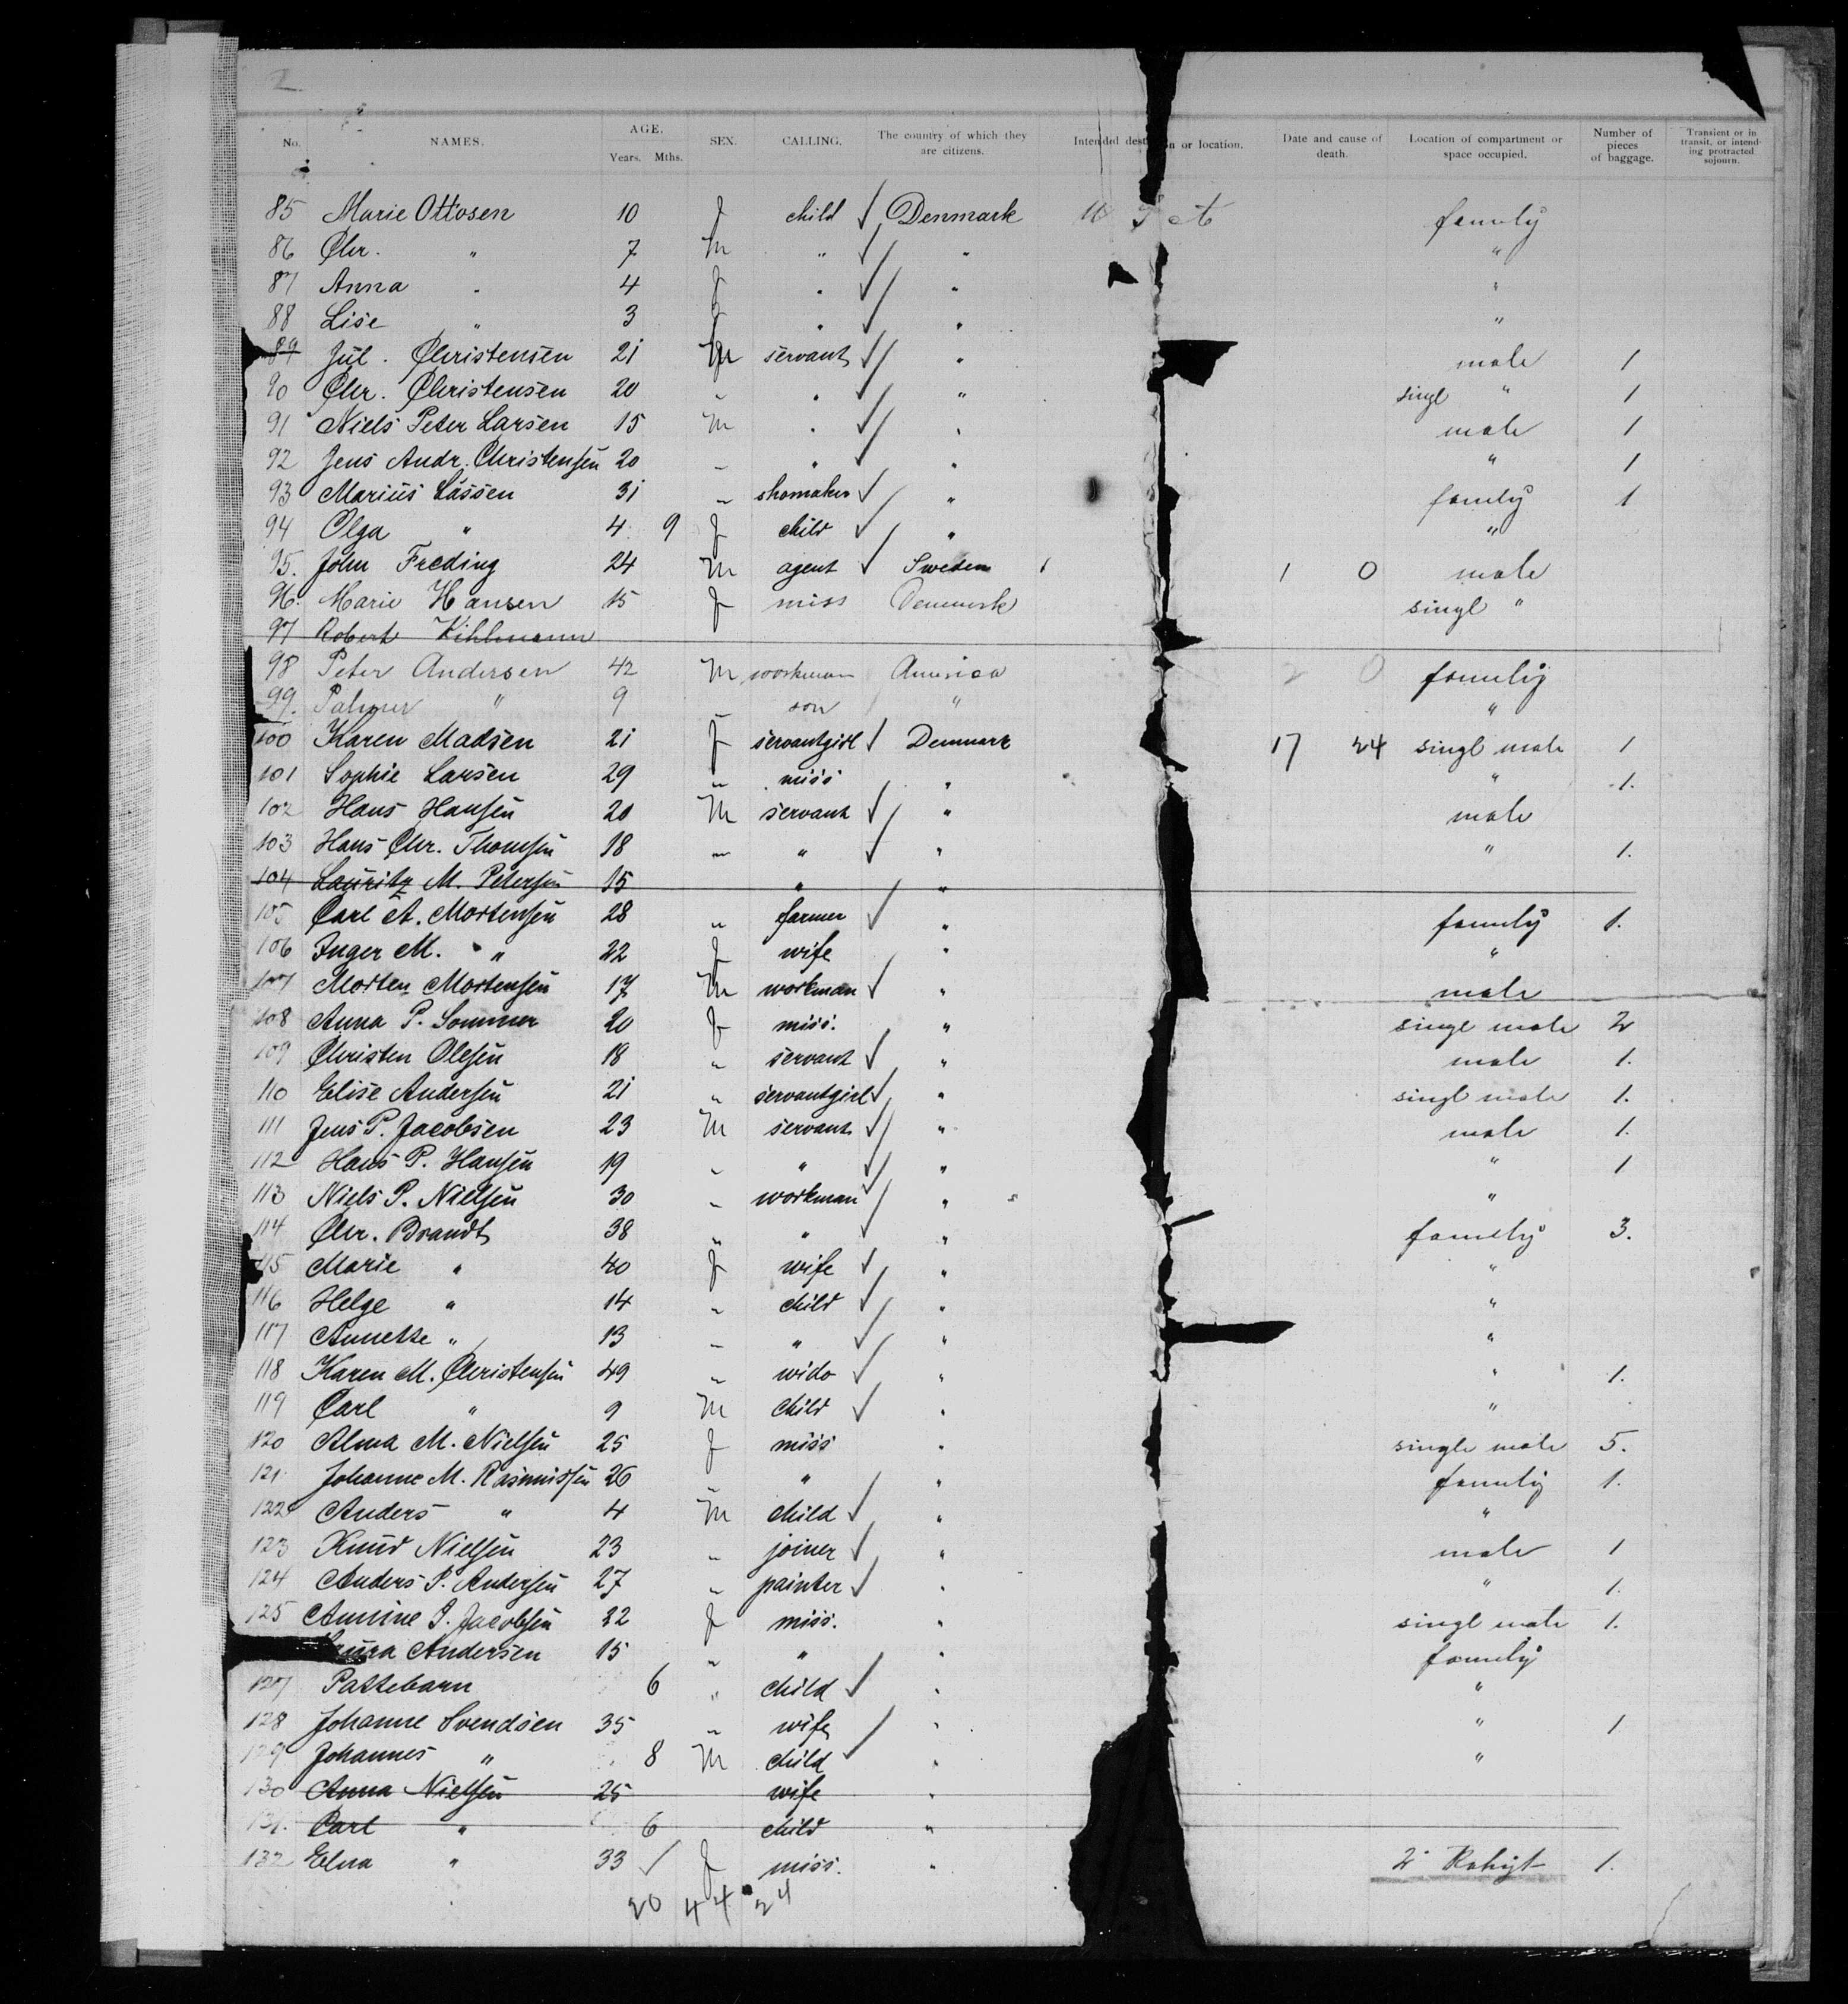 2
No. NAMES. AGE. Years. Mths. SEX. CALLING. The country of which they are citizens. Intended dest n or location. Date and cause of death. Location of compartment or space occupied. Number of pieces of baggage. Transient or in transit, or intending protracted sojourn.
85 Marie Ottosen 10 f child ✓ Denmark family
86 Chr. " 7 M " ✓ " "
87 Anna " 4 f " ✓ " "
88 Lise " 3 f " ✓ " "
89 Jul. Christensen 21 M servant ✓ " male 1
90 Chr. Christensen 20 " " ✓ " singl " 1
91 Niels Peter Larsen 15 M " ✓ " male 1
92 Jens Andr. Christensen 20 " " ✓ " " 1
93 Marius Lassen 31 " shomaker ✓ " family 1
94 Olga " 4 9 f child ✓ " "
95. John Freding 24 M agent ✓ Sweden 1 0 male
96. Marie Hansen 15 f miss Denmark singl "
97 Robert Kihlmann
98 Peter Andersen 42 M workman America 2 0 family
99. Palmer " 9 " son " "
100 Karen Madsen 21 f servantgirl ✓ Denmark 17 24 singl male 1
101 Sophie Larsen 29 " miss " " 1.
102 Hans Hansen 20 M servant ✓ " male
103 Hans Chr. Thomsen 18 " " ✓ " " 1.
104 Lauritz M. Petersen 15 " "
105 Carl A. Mortensen 28 " farmer ✓ " family 1.
106 Inger M. " 22 f wife " "
107 Morten Mortensen 17 M workman ✓ " male
108 Anna P. Sommer 20 f miss. " singl male 2
109 Christen Olesen 18 " servant ✓ " male 1.
110 Elise Andersen 21 " servantgirl ✓ " singl male 1.
111 Jens P. Jacobsen 23 M servant ✓ " male 1.
112 Hans P. Hansen 19 " " ✓ " " 1
113 Niels P. Nielsen 30 " workman ✓ " "
114 Chr. Brandt 38 " " ✓ " family 3.
115 Marie " 40 f wife ✓ " "
116 Helge " 14 " child ✓ " "
117 Annette " 13 " " ✓ " "
118 Karen M. Christensen 49 " wido ✓ " " 1.
119 Carl " 9 M child ✓ " "
120 Alma M. Nielsen 25 f miss " single male 5.
121 Johanne M. Rasmussen 26 " " family 1.
122 Anders " 4 M child ✓ " "
123 Knud Nielsen 23 " joiner ✓ " male 1
124 Anders P. Andersen 27 " painter ✓ " " 1.
125 Annine P. Jacobsen 22 f miss. " singl male 1.
Andersen 15 " " " family
127 Pattebarn 6 " child ✓ " "
128 Johanne Svendsen 35 " wife " " 1
129 Johannes " 8 M child ✓ " "
130 Anna Nielsen 25 wife "
131. Carl " 6 child "
132 Elna " 33 ✓ f miss. " 1.
20 44 24